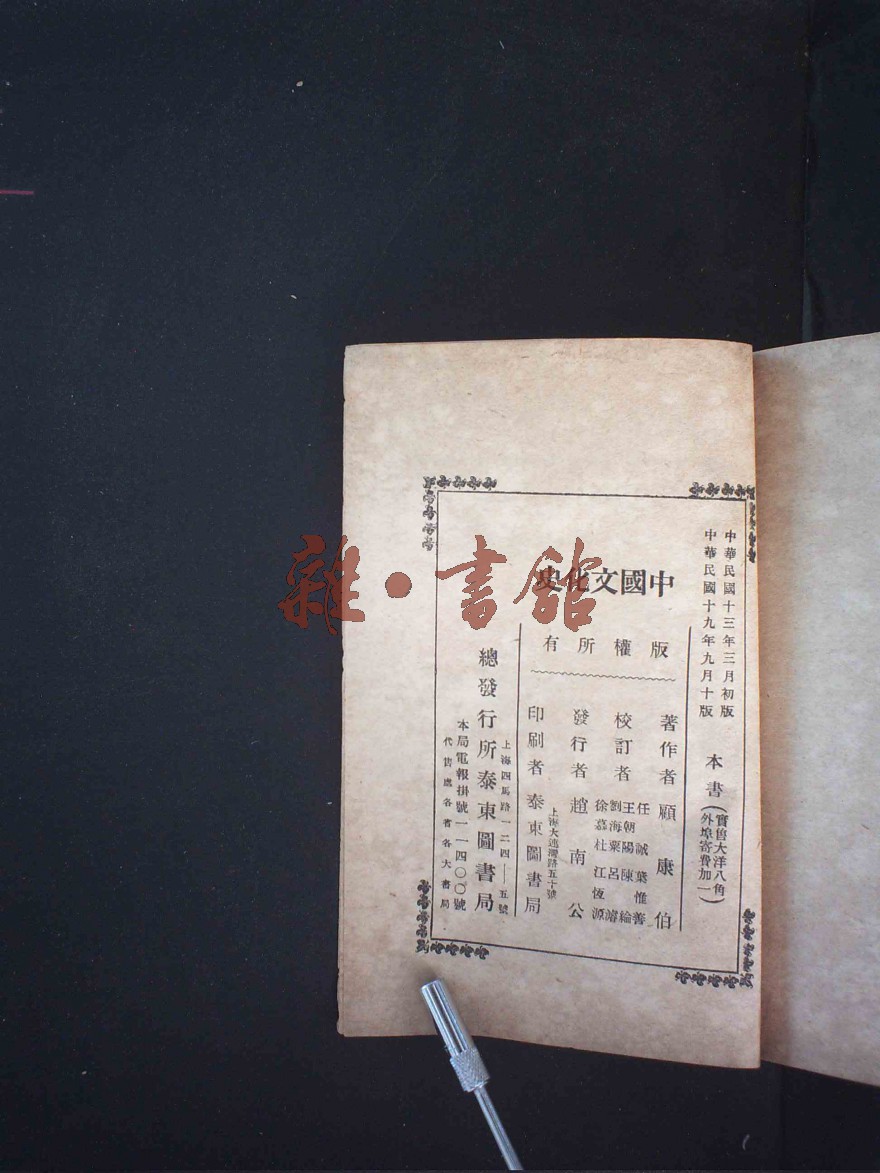 中華民國十三年三月初版
中華民國十九年九月十版
本書（實售大洋八角
外埠寄費加一）
中國文化史
版權所有
著作者 顧康伯
校訂者
任誠 葉惟善
王朝陽 陳綸
劉海粟 呂濬
徐慕杜 江恆源
發行者 趙南公
上海大連灣路五十號
印刷者 泰東圖書局
上海四馬路一二四——五號
總發行所泰東圖書局
本局電報掛號一一四〇〇號
代售處各省各大書局
雜·書館